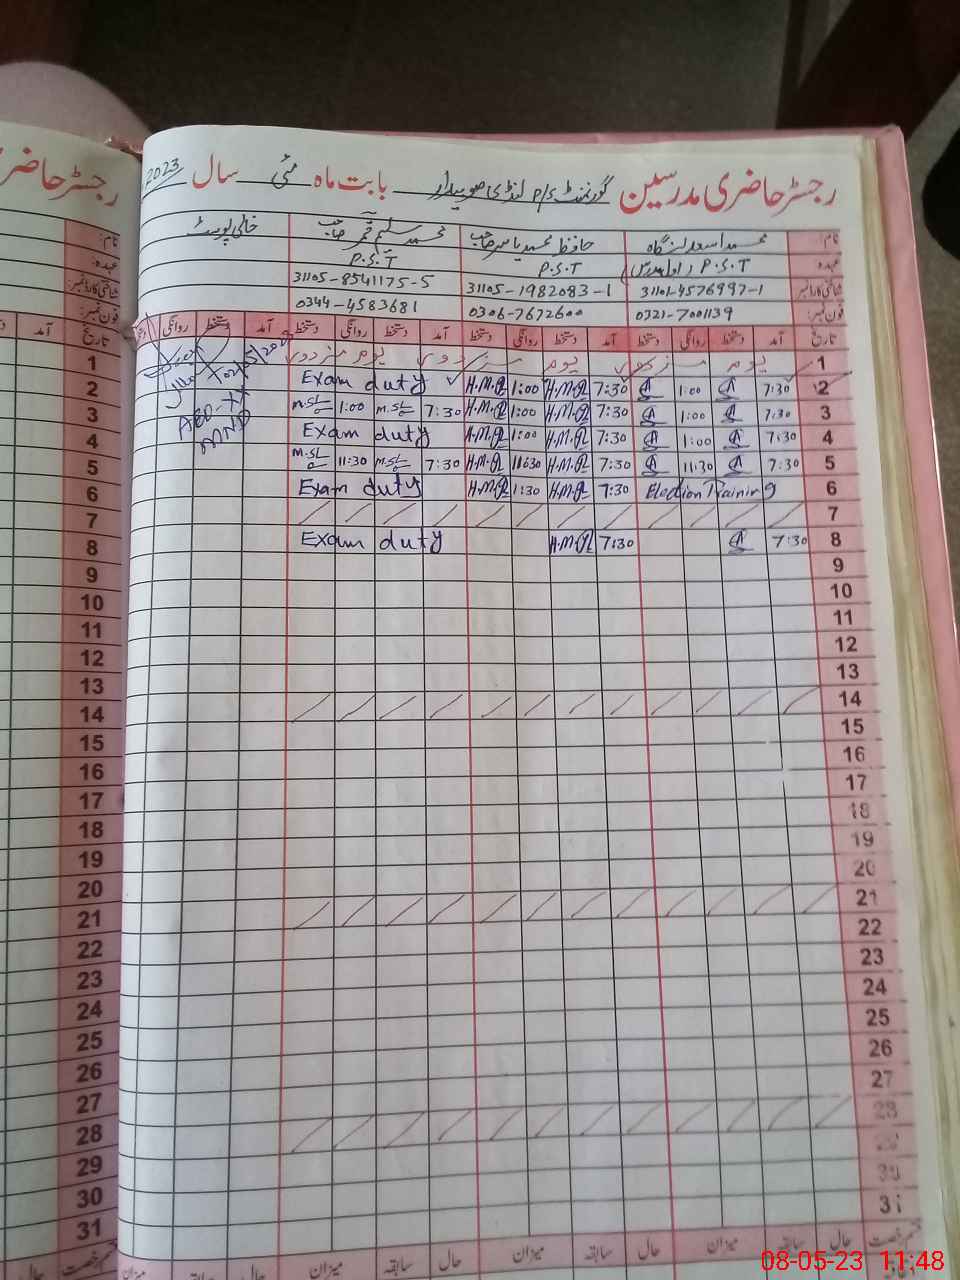 رجسٹر حاضری مدرسین گورنمنٹ P/S لنڈی صوبیدار بابت ماہ مئی سال 2023
نام: محمد اسعد لنگاہ حافظ محمد یاسر صاحب محمد سلیم قمر صاحب خالی پوسٹ
عہدہ: P.S.T P.S.T P.S.T
شناختی کارڈ نمبر: 31101-4576997-1 31105-1982083-1 31105-8541175-5
فون نمبر: 0321-7001139 0306-7672600 0344-4583681
تاریخ آمد دستخط روانگی دستخط آمد دستخط روانگی دستخط آمد دستخط روانگی دستخط آمد دستخط روانگی
1 یوم مزدور یوم یوم مزدور
2 7:30 1:00 7:30 H.M.Y 1:00 H.M.Y Exam duty
3 7:30 1:00 7:30 H.M.Y 1:00 H.M.Y 7:30 M.SL 1:00 M.SL
4 7:30 1:00 7:30 H.M.Y 1:00 H.M.Y Exam duty
5 7:30 11:30 7:30 H.M.Y 11:30 H.M.Y 7:30 M.SL 11:30 M.SL
6 Election Training 7:30 H.M.Y 1:30 H.M.Y Exam duty
7
8 7:30 7:30 H.M.Y Exam duty
9
10
11
12
13
14
15
16
17
18
19
20
21
22
23
24
25
26
27
28
29
30
31
حال سابقہ میزان حال سابقہ میزان حال سابقہ میزان
رجسٹر حاضری
آمد
1
2
3
4
5
6
7
8
9
10
11
12
13
14
15
16
17
18
19
20
21
22
23
24
25
26
27
28
29
30
31
08-05-23 11:48